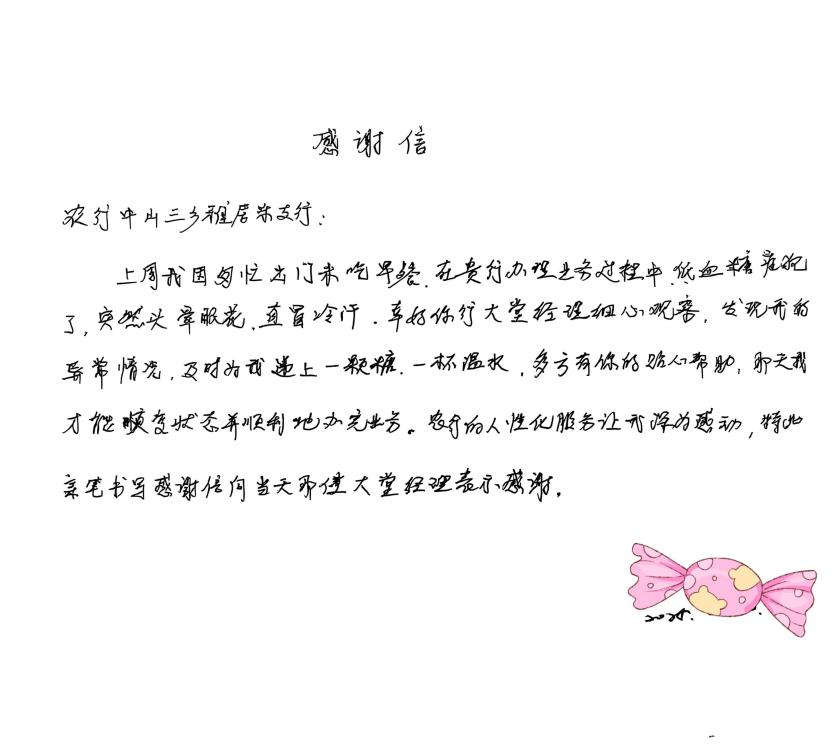 感谢信
农行中山三乡雅居乐支行：
上周我因匆忙出门未吃早餐，在贵行办理业务过程中，低血糖症犯
了，突然头晕眼花，直冒冷汗。幸好你行大堂经理细心观察，发现我的
异常情况，及时为我递上一颗糖，一杯温水，多亏有你的贴心帮助，那天我
才能恢复状态并顺利地办完业务。农行的人性化服务让我深为感动，特此
亲笔书写感谢信向当天那位大堂经理表示感谢。